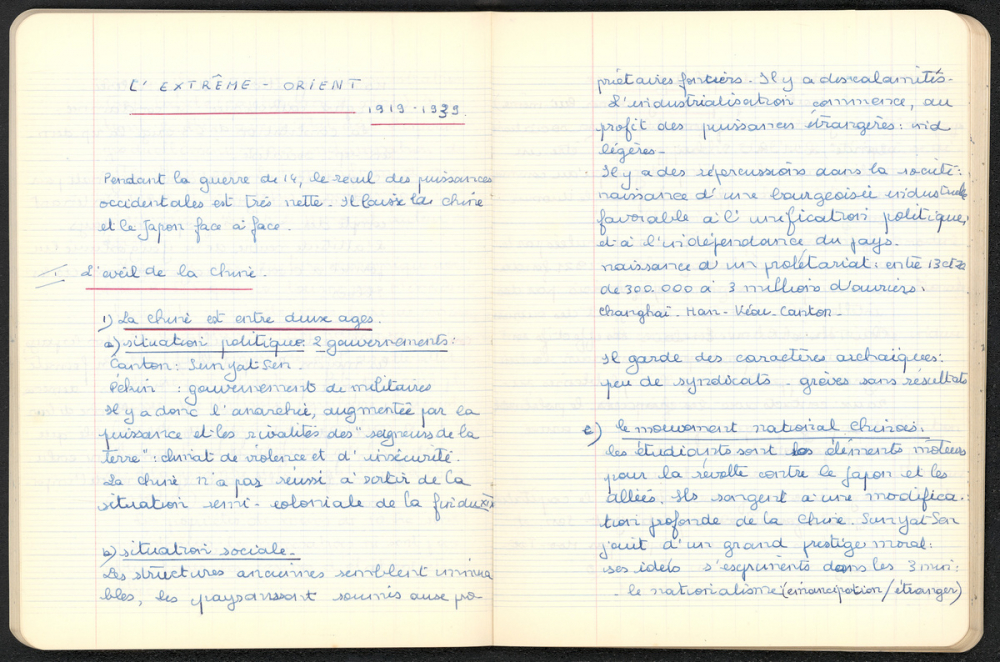 L'EXTRÊME-ORIENT
1919-1939.
Pendant la guerre de 14, le recul des puissances
occidentales est très nette. Il laisse la chine
et le Japon face à face.
I. L'éveil de la chine.
1) La chine est entre deux ages.
a) situation politique. 2 gouvernements:
Canton: Sun yat-Sen.
Pékin : gouvernement de militaires
Il y a donc l'anarchie, augmentée par la
puissance et les rivalités des "seigneurs de la
terre": climat de violence et d'insécurité.
La chine n'a pas réussi à sortir de la
situation semi-coloniale de la fin du XIX
b) situation sociale.
Les structures anciennes semblent immua
bles, les paysans sont soumis aux pro-
priétaires fonciers. Il y a des calamités.
L'industrialisation commence, au
profit des puissances étrangères: ind
légères.
Il y a des répercussions dans la société:
naissance d'une bourgeoisie industrielle
favorable à l'unification politique,
et à l'indépendance du pays.
naissance d'un prolétariat: entre 13 et 22
de 300.000 à 3 millions d'ouvriers.
Changhaï - Han-Kéou - Canton -
Il garde des caractères archaïques:
peu de syndicats - grèves sans résultats
c) le mouvement national chinois.
les étudiants sont les éléments moteurs
pour la révolte contre le Japon et les
alliés. Ils songent à une modifica-
tion profonde de la Chine. Sun yat-Sen
jouit d'un grand prestige moral:
ses idées s'expriment dans les 3 min:
- le nationalisme (émancipation/étranger)